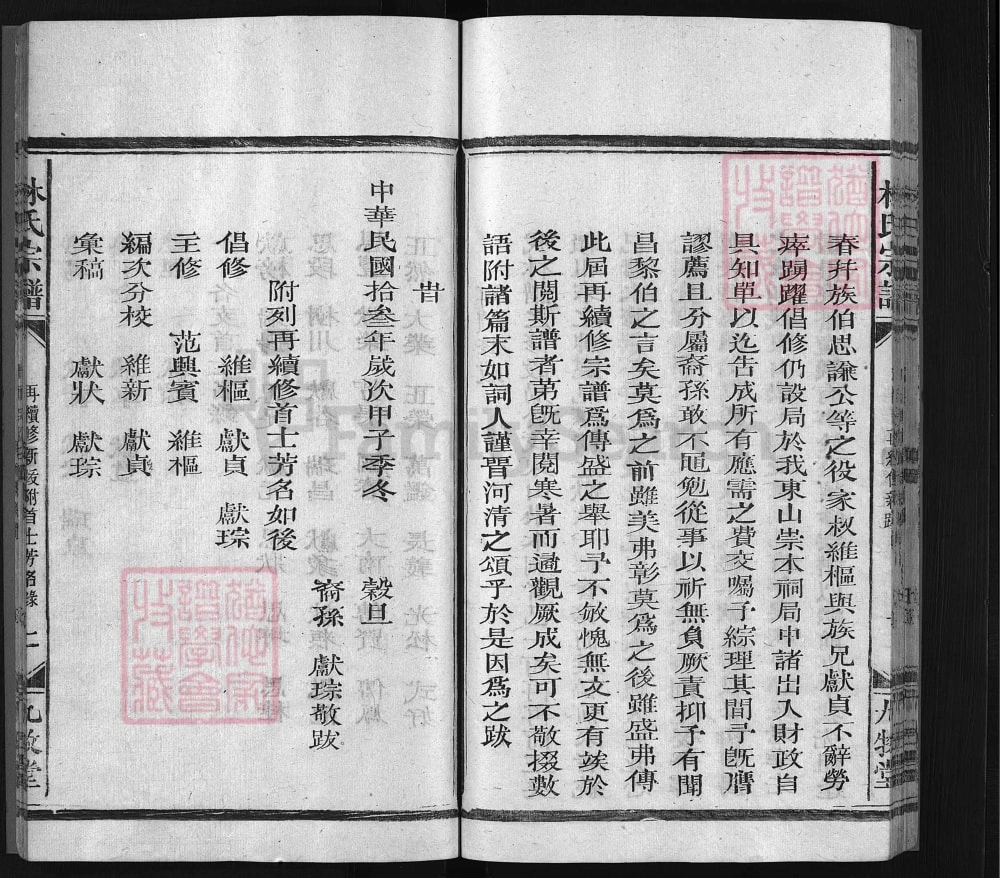 林氏宗譜
再續修新跋
九牧堂
春幷族伯思讓公等之役家叔維樞與族兄獻貞不辭勞
瘁踴躍倡修仍設局於我東山崇本祠局中諸出入財政自
具知單以迄告成所有應需之費交囑予綜理其間予既膺
謬薦且分屬裔孫敢不黽勉從事以祈無負厥責抑予有聞
昌黎伯之言矣莫爲之前雖美弗彰莫爲之後雖盛弗傳
此屆再續修宗譜爲傳盛之舉耶予不敏愧無文更有竢於
後之閱斯譜者第既幸閱寒暑而遹觀厥成矣可不敬掇數
語附諸篇末如詞人謹晉河清之頌乎於是因爲之跋
旹
中華民國拾叁年歲次甲子季冬 穀旦
裔孫 獻琮敬跋
附列再續修首士芳名如後
倡修 維樞 獻貞 獻琮
主修 范興賓 維樞
編次分校 維新 獻貞
彙稿 獻狀 獻琮
林氏宗譜
再續修新跋附首士芳名錄
九牧堂
FamilySearch